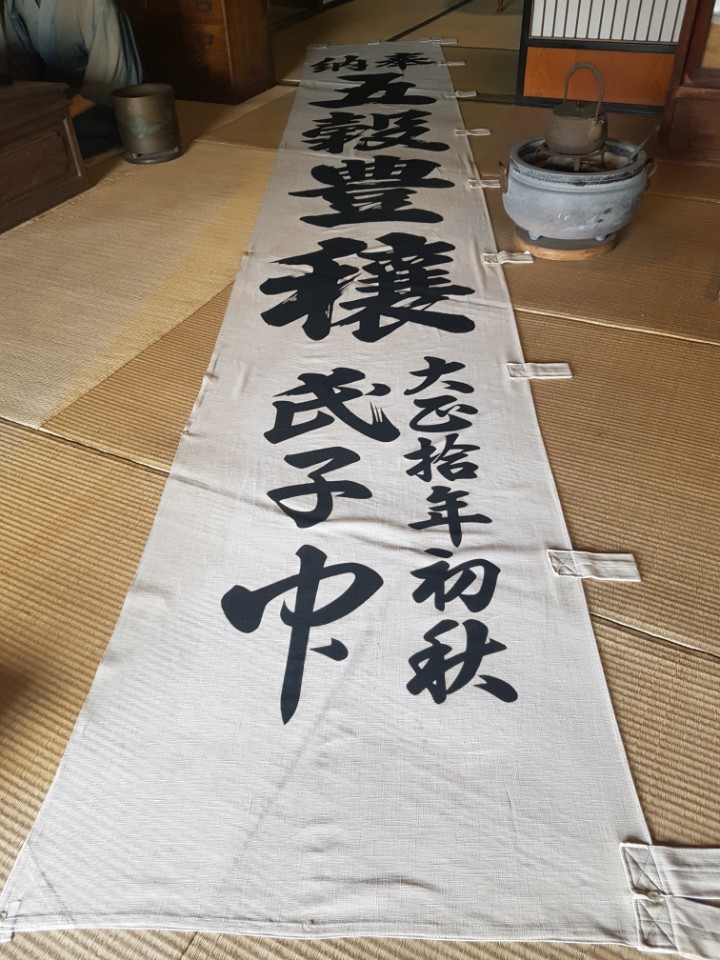 奉納
五穀豊穣
大正拾年初秋
氏子中